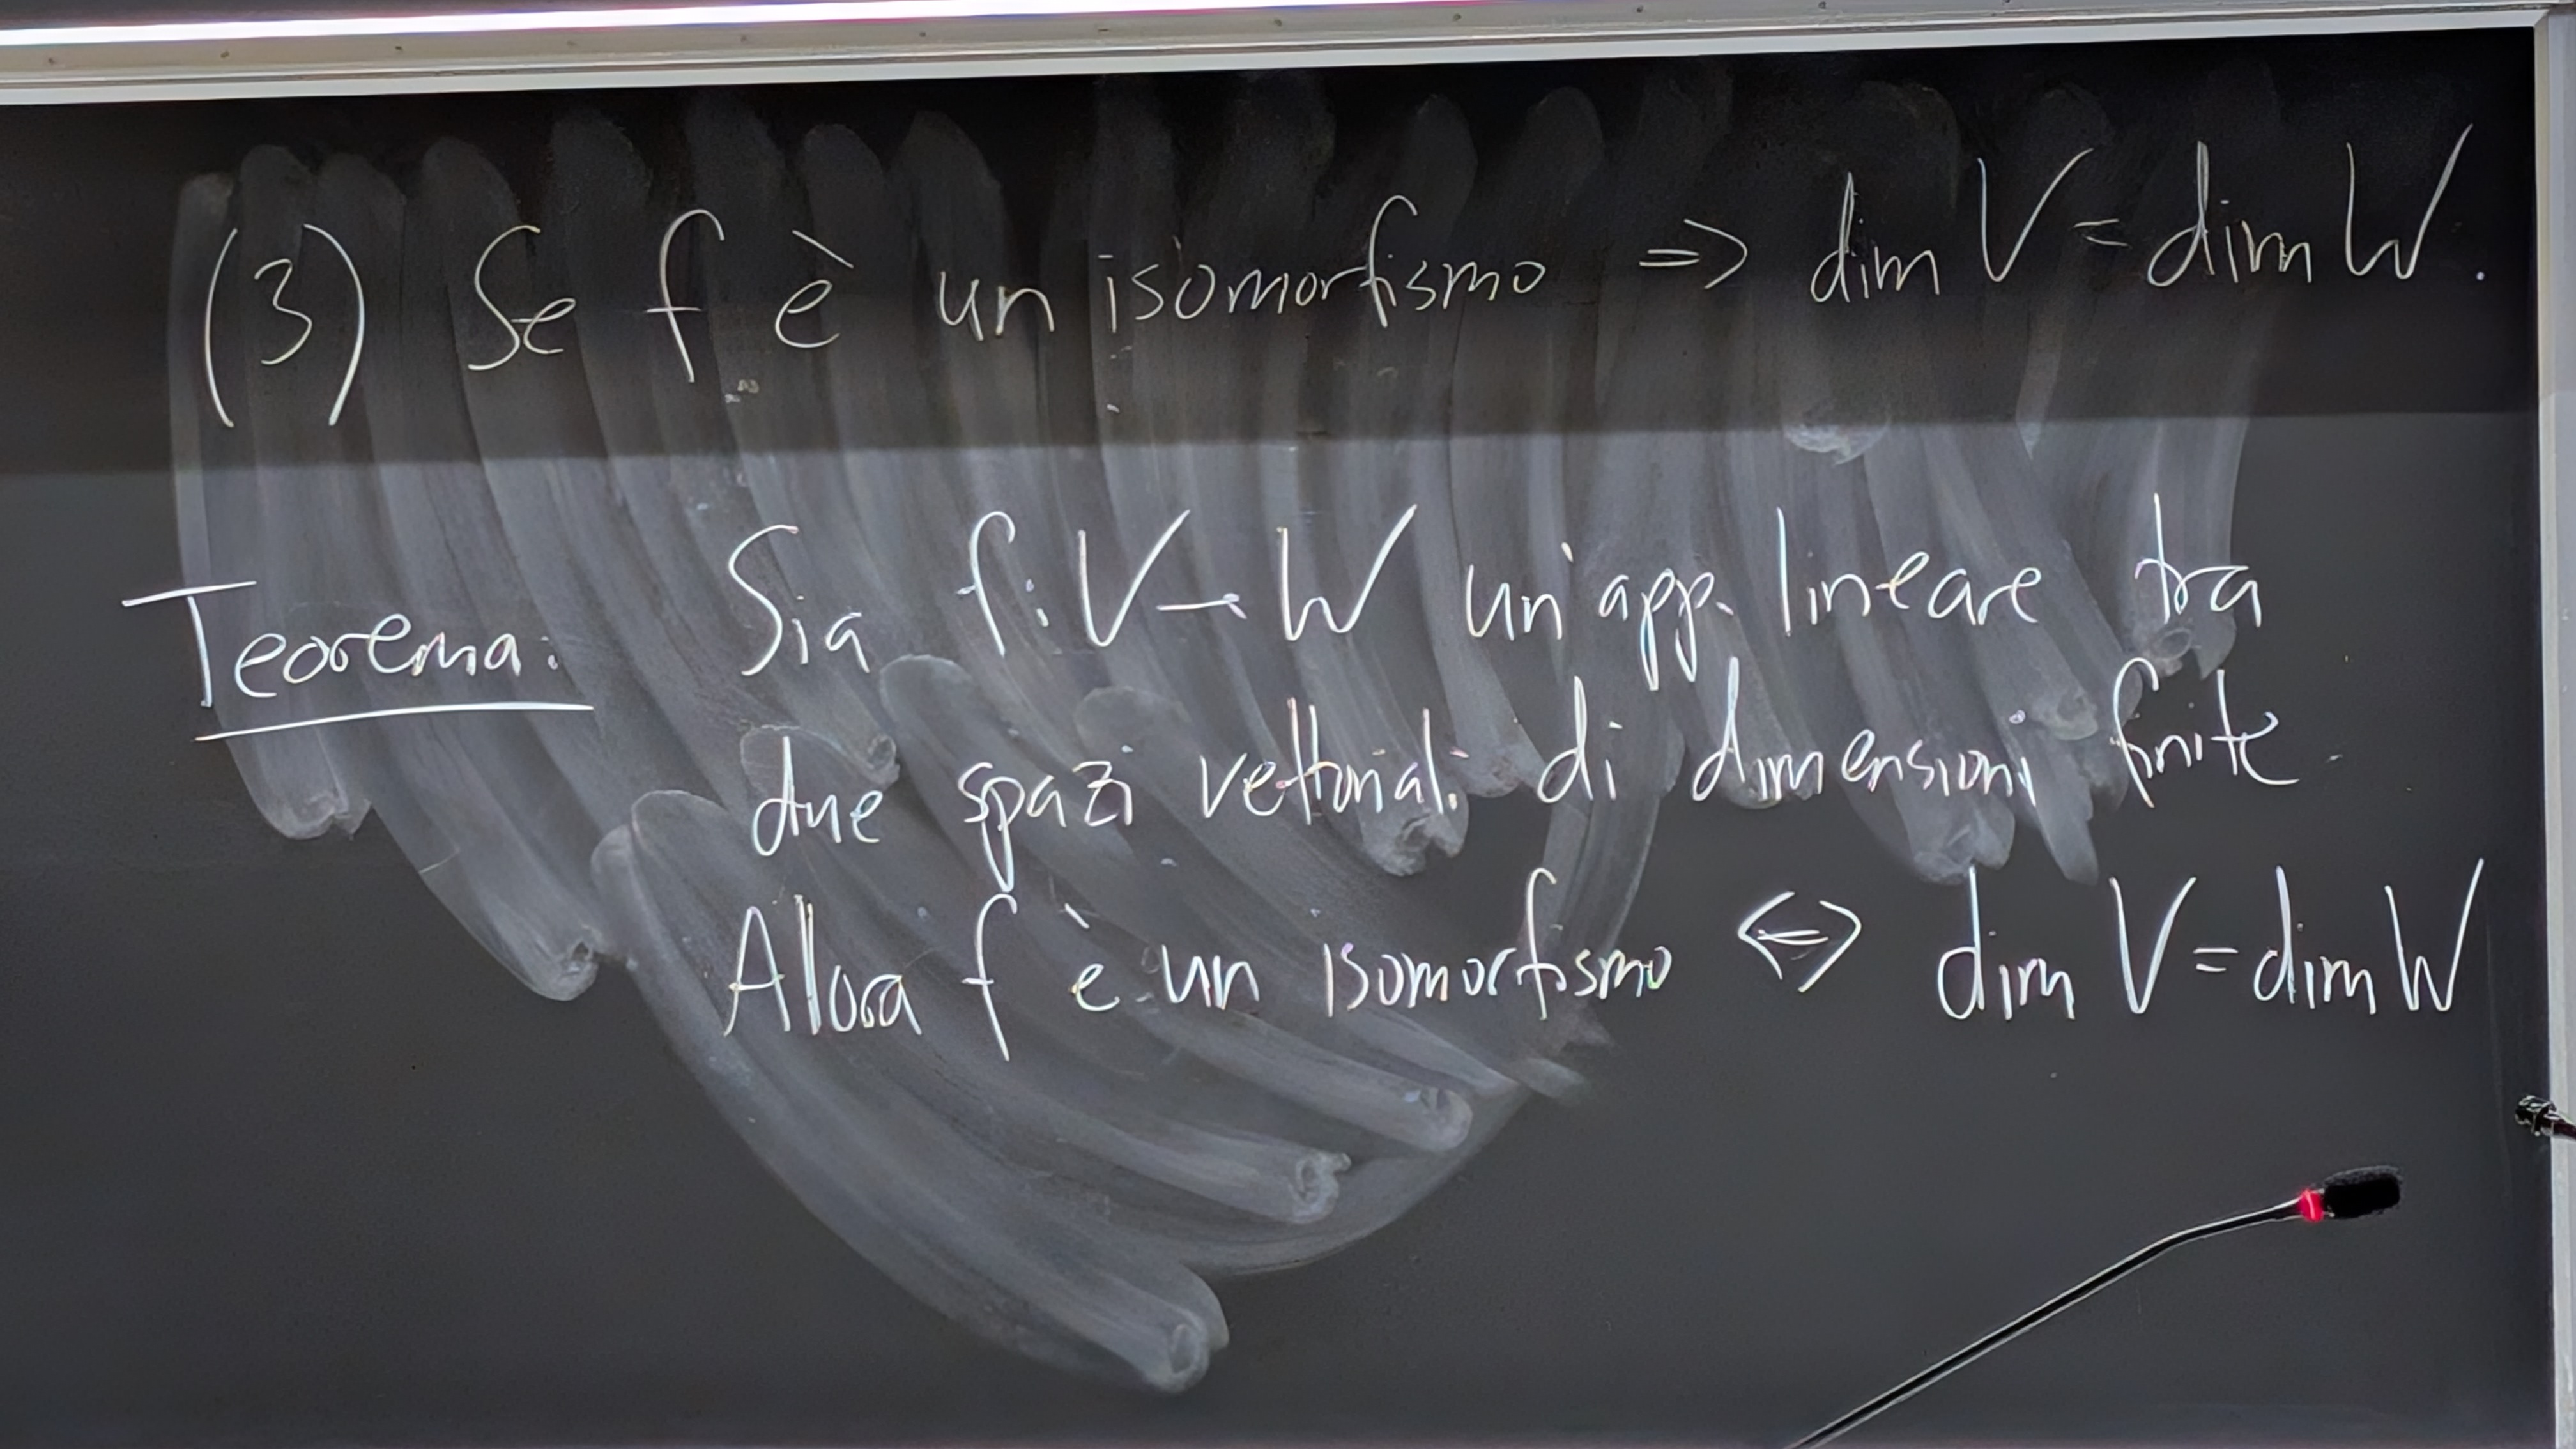 (3) Se f è un isomorfismo => dim V = dim W.
Teorema: Sia f: V → W un'app. lineare tra
due spazi vettoriali di dimensioni finite.
Allora f è un isomorfismo <=> dim V = dim W